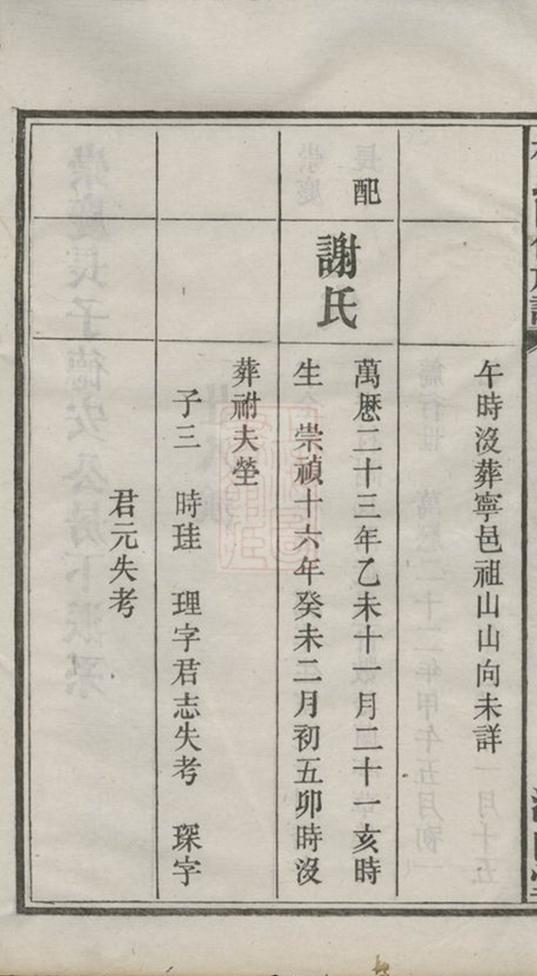 午時沒葬寧邑祖山山向未詳
配
謝氏
萬歷二十三年乙未十一月二十一亥時
生　崇禎十六年癸未二月初五卯時沒
葬祔夫塋
子三　時珪　理字君志失考　琛字
君元失考